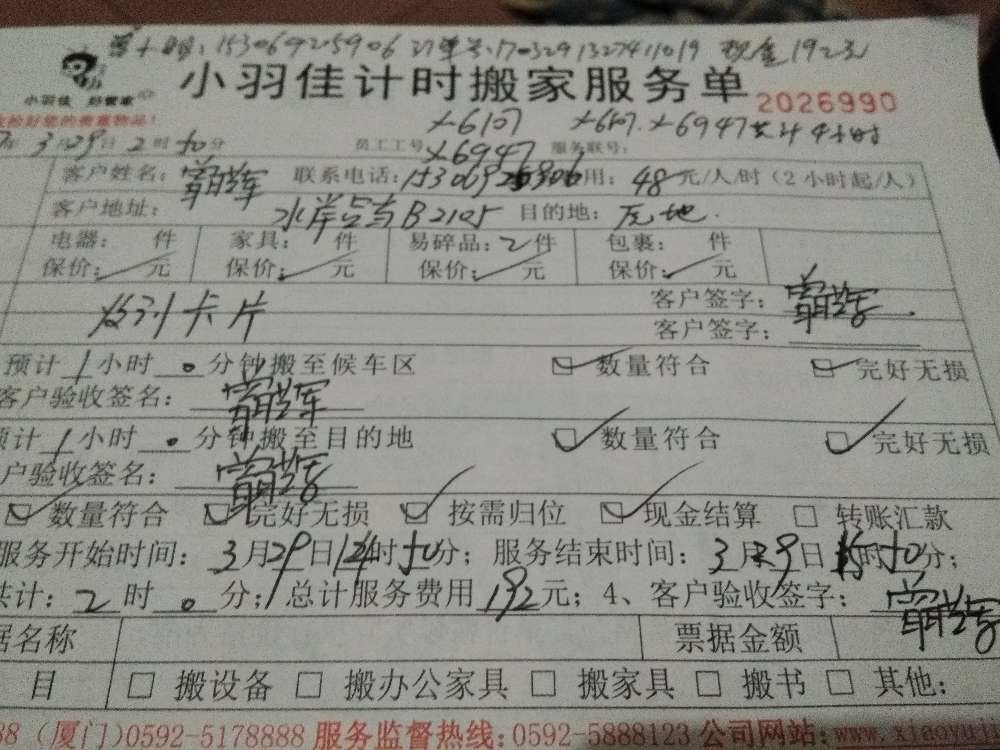 :15306925906 订单号:1703291327411019 现金192元
小羽佳 好管家
小羽佳计时搬家服务单
2026990
捡好您的贵重物品!
X6107 X6107.X6947共计4小时
3月29日2时50分 员工工号 X6947 服务联号:
客户姓名: 联系电话: 用:48元/人/时(2小时起/人)
客户地址: 水岸 B2105 目的地:
电器: 件 家具: 件 易碎品:2件 包裹: 件
保价: 元 保价: 元 保价: 元 保价: 元
客户签字:
卡片
客户签字:
预计1小时0分钟搬至候车区 数量符合 完好无损
客户验收签名:
预计1小时0分钟搬至目的地 数量符合 完好无损
户验收签名:
数量符合 完好无损 按需归位 现金结算 转账汇款
服务开始时间:3月29日 时50分;服务结束时间:3月29日 时50分;
共计:2时0分; 总计服务费用192元;4、客户验收签字:
据名称 票据金额
目 搬设备 搬办公家具 搬家具 搬书 其他:
88 (厦门)0592-5178888 服务监督热线:0592-5888123 公司网站:www.xiaoyuji